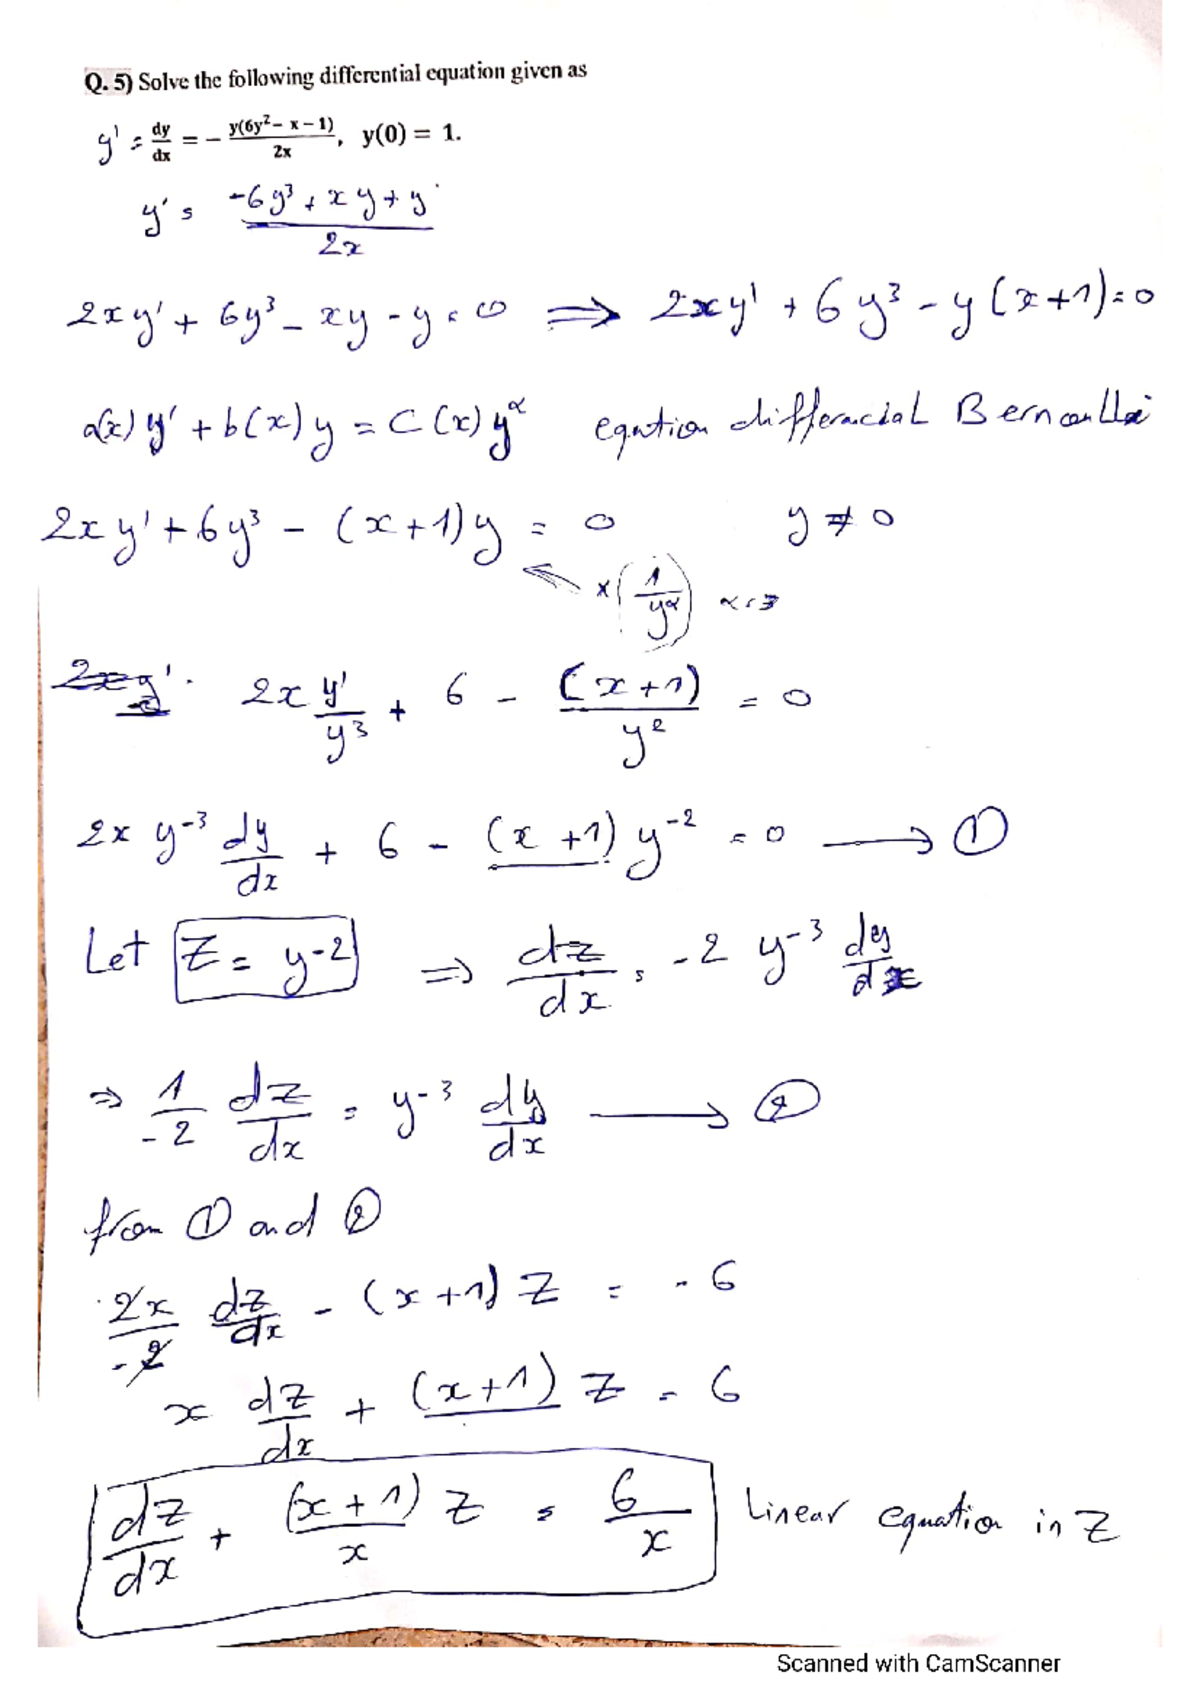 Q. 5) Solve the following differential equation given as
y' = dy/dx = − y(6y² − x − 1)/2x, y(0) = 1.
y' = (-6y³ + xy + y)/2x
2xy' + 6y³ - xy - y = 0 ⟹ 2xy' + 6y³ - y(x+1) = 0
a(x) y' + b(x) y = C(x) y^α eqution differacial Bernoulli
2xy' + 6y³ - (x+1)y = 0 y ≠ 0
x(1/y^α) α = 3
2x y'/y³ + 6 - (x+1)/y² = 0
2x y⁻³ dy/dx + 6 - (x+1) y⁻² = 0 ⟶ ①
Let Z = y⁻² ⟹ dz/dx = -2 y⁻³ dy/dx
⟹ 1/-2 dz/dx = y⁻³ dy/dx ⟶ ②
from ① and ②
2x/-2 dz/dx - (x+1) Z = -6
x dz/dx + (x+1) Z = 6
dz/dx + (x+1)/x Z = 6/x Linear equation in Z
Scanned with CamScanner